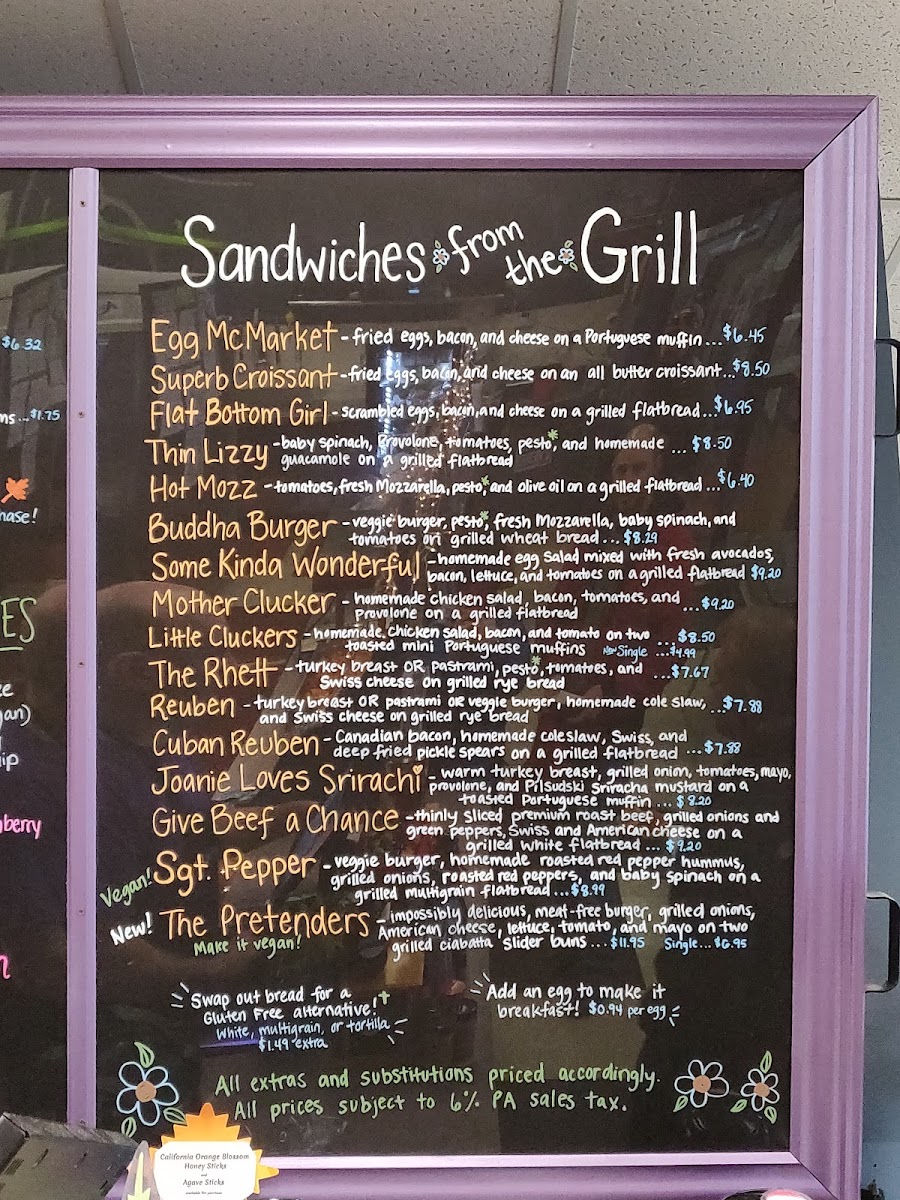 Sandwiches from the Grill
Egg McMarket - fried eggs, bacon, and cheese on a Portuguese muffin ... $6.45
Superb Croissant - fried eggs, bacon, and cheese on an all butter croissant ... $8.50
Flat Bottom Girl - scrambled eggs, bacon, and cheese on a grilled flatbread ... $6.95
Thin Lizzy - baby spinach, Provolone, tomatoes, pesto, and homemade ... $8.50
guacamole on a grilled flatbread
Hot Mozz - tomatoes, fresh Mozzarella, pesto, and olive oil on a grilled flatbread ... $6.40
Buddha Burger - veggie burger, pesto, fresh Mozzarella, baby spinach, and
tomatoes on grilled wheat bread ... $8.29
Some Kinda Wonderful - homemade egg salad mixed with fresh avocados,
bacon, lettuce, and tomatoes on a grilled flatbread $9.20
Mother Clucker - homemade chicken salad, bacon, tomatoes, and
Provolone on a grilled flatbread ... $9.20
Little Cluckers - homemade chicken salad, bacon, and tomato on two ... $8.50
toasted mini Portuguese muffins New Single ... $4.99
The Rhett - turkey breast OR pastrami, pesto, tomatoes, and ... $7.67
Swiss cheese on grilled rye bread
Reuben - turkey breast OR pastrami OR veggie burger, homemade cole slaw, ... $7.88
and Swiss cheese on grilled rye bread
Cuban Reuben - Canadian bacon, homemade coleslaw, Swiss, and
deep fried pickle spears on a grilled flatbread ... $7.88
Joanie Loves Srirachi - warm turkey breast, grilled onion, tomatoes, mayo,
provolone, and Pilsudski Sriracha mustard on a
toasted Portuguese muffin ... $8.20
Give Beef a Chance - thinly sliced premium roast beef, grilled onions and
green peppers, Swiss and American cheese on a
grilled white flatbread ... $9.20
Vegan! Sgt. Pepper - veggie burger, homemade roasted red pepper hummus,
grilled onions, roasted red peppers, and baby spinach on a
grilled multigrain flatbread ... $8.99
New! The Pretenders - impossibly delicious, meat-free burger, grilled onions,
American cheese, lettuce, tomato, and mayo on two
Make it vegan! grilled ciabatta slider buns ... $11.95 Single ... $6.95
Swap out bread for a
Gluten Free alternative!†
White, multigrain, or tortilla
$1.49 extra
Add an egg to make it
breakfast! $0.94 per egg
All extras and substitutions priced accordingly.
All prices subject to 6% PA sales tax.
California Orange Blossom
Honey Sticks
and
Agave Sticks
$6.32
ms ... $1.75
hase!
ES
gan)
ip
berry